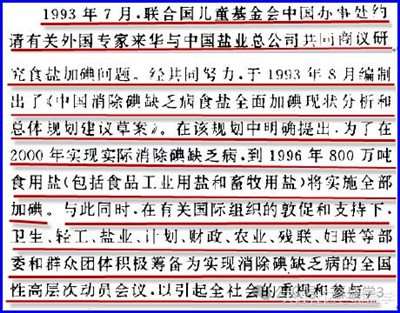 1993年7月,联合国儿童基金会中国办事处约
请有关外国专家来华与中国盐业总公司共同商议研
究食盐加碘问题。经共同努力,于1993年8月编制
出了《中国消除碘缺乏病食盐全面加碘现状分析和
总体规划建议草案》。在该规划中明确提出,为了在
2000年实现实际消除碘缺乏病,到1996年800万吨
食用盐(包括食品工业用盐和畜牧用盐)将实施全部
加碘。与此同时,在有关国际组织的敦促和支持下,
卫生、轻工、盐业、计划、财政、农业、残联、妇联等部
委和群众团体积极筹备为实现消除碘缺乏病的全国
性高层次动员会议,以引起全社会的重视和参与